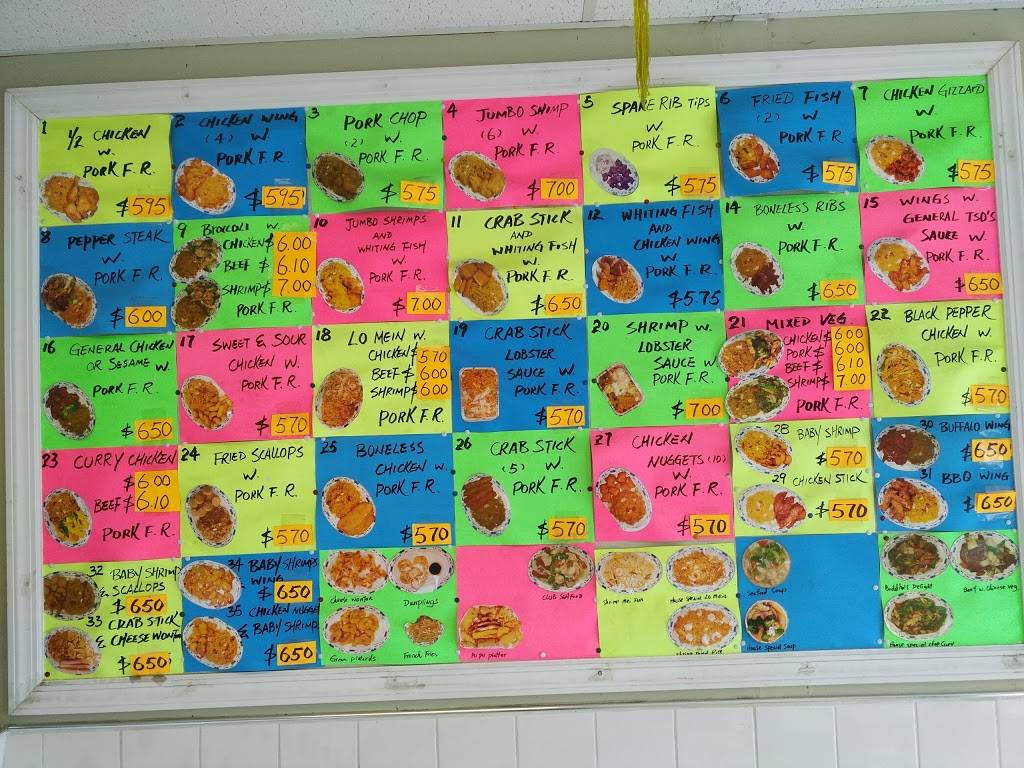 1
1/2 CHICKEN
W.
PORK F.R.
$595
2
CHICKEN WING
(4) W.
PORK F.R.
$595
3
PORK CHOP
(2) W.
PORK F.R.
$575
4
JUMBO SHIMP
(6) W.
PORK F.R.
$700
5
SPARE RIB TIPS
W.
PORK F.R.
$575
6
FRIED FISH
(2) W.
PORK F.R.
$575
7
CHICKEN GIZZARD
W.
PORK F.R.
$575
8
PEPPER STEAK
W.
PORK F.R.
$6.00
9 BROCCOLI W.
CHICKEN $6.00
BEEF $6.10
SHRIMP $7.00
PORK F.R.
10
JUMBO SHRIMPS
AND
WHITING FISH
W.
PORK F.R.
$7.00
11
CRAB STICK
AND
WHITING FISH
W.
PORK F.R.
$650
12
WHITING FISH
AND
CHICKEN WING
W.
PORK F.R.
$5.75
14
BONELESS RIBS
W.
PORK F.R.
$650
15
WINGS W.
GENERAL TSO'S
SAUCE W.
PORK F.R.
$650
16
GENERAL CHICKEN
OR SESAME W.
PORK F.R.
$650
17
SWEET & SOUR
CHICKEN W.
PORK F.R.
$570
18
LO MEIN W.
CHICKEN $570
BEEF $600
SHRIMP $600
PORK F.R.
19
CRAB STICK
LOBSTER
SAUCE W.
PORK F.R.
$570
20
SHRIMP W.
LOBSTER
SAUCE W.
PORK F.R.
$700
21
MIXED VEG.
CHICKEN $6.00
PORK $6.00
BEEF $6.10
SHRIMP $7.00
PORK F.R.
22
BLACK PEPPER
CHICKEN W.
PORK F.R.
$570
23
CURRY CHICKEN
$6.00
BEEF $6.10
PORK F.R.
24
FRIED SCALLOPS
W.
PORK F.R.
$570
25
BONELESS
CHICKEN W.
PORK F.R.
$570
26
CRAB STICK
(5) W.
PORK F.R.
$570
27
CHICKEN
NUGGETS (10)
W.
PORK F.R.
$570
28
BABY SHRIMP
$570
29 CHICKEN STICK
$570
30 BUFFALO WING
$650
31
BBQ WING
$650
32
BABY SHRIMP
& SCALLOPS
$650
33 CRAB STICK
& CHEESE WONTON
$650
34 BABY SHRIMPS
WING
$650
35 CHICKEN NUGGET
& BABY SHRIMP
$650
Cheese Wonton
Dumplings
French Fries
Club Seafood
Pupu platter
Shrimp Mei Fun
House Special Lo Mein
Seafood Soup
House Special Soup
Buddha's Delight
Beef w. Chinese Veg